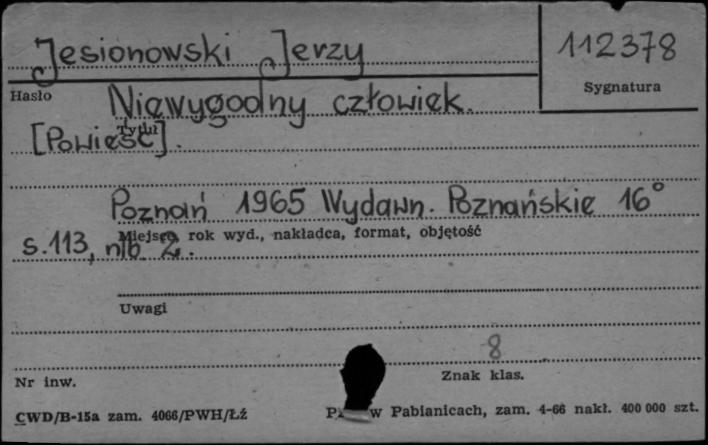 Jesionowski Jerzy
112378
Hasło
Sygnatura
Niewygodny człowiek.
Tytuł
[Powieść].
Poznań 1965 Wydawn. Poznańskie 16°
Miejsce, rok wyd., nakładca, format, objętość
s. 113, nlb 2.
Uwagi
8
Nr inw.
Znak klas.
CWD/B-15a zam. 4066/PWH/Łż
w Pabianicach, zam. 4-66 nakł. 400 000 szt.